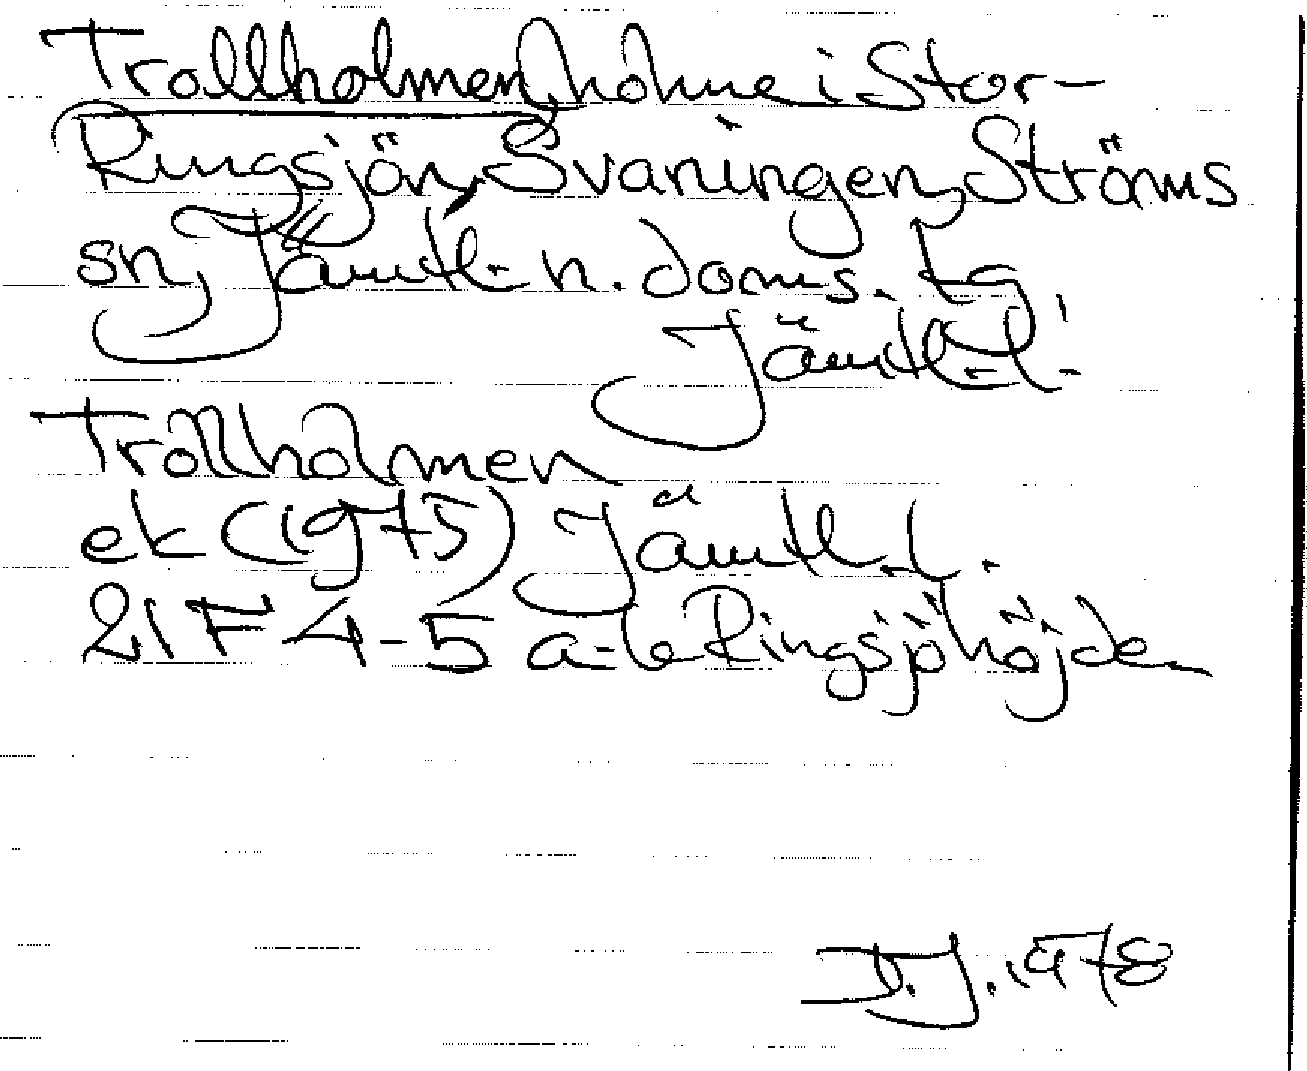 Trollholmen, holme i Stor-
Ringsjön, Svaningen, Ströms
sn, Jämtl. n. doms. tg
Jämtl. l.
Trollholmen
ek (1975) Jämtl. l.
21 F 4-5 a-b Ringsjöhöjden
D.J. 1978